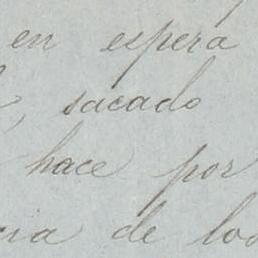 en espera
, sacado
hace por
cia de los